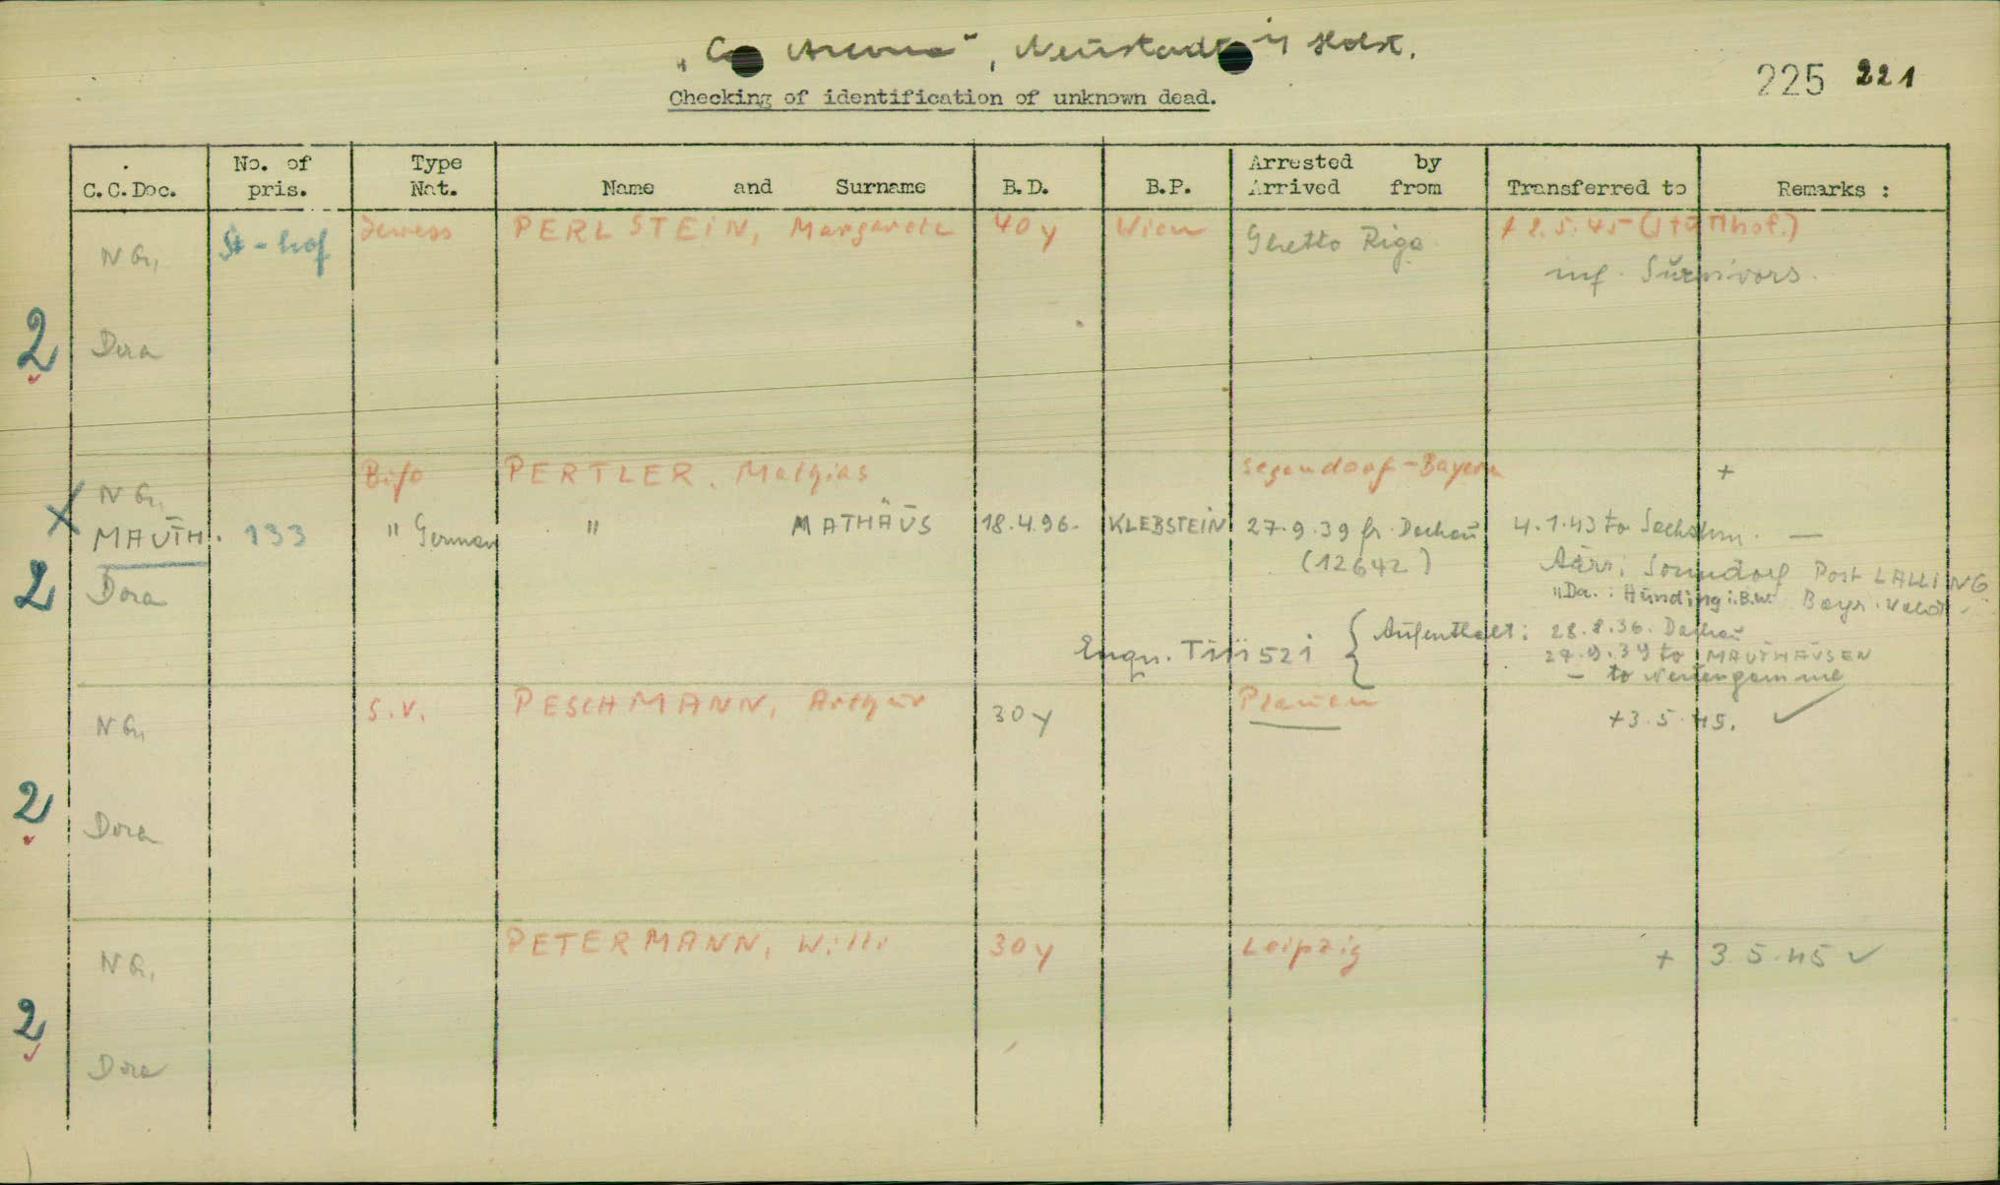 „Cap Arcona“, Neustadt in Holst.
225 221
Checking of identification of unknown dead.
C.C.Doc. No. of pris. Type Nat. Name and Surname B.D. B.P. Arrested by Arrived from Transferred to Remarks :
N G. St-hof Jewess PERLSTEIN, Margarete 40y Wien Ghetto Riga + 2.5.45 (Stutthof.)
inf. Survivors.
2 Dora
N G. Bifo PERTLER, Mathias Segendorf-Bayern +
X MAUTH. 133 " German " MATHÄUS 18.4.96. KLEBSTEIN 27.9.39 fr. Dachau 4.1.43 to Sachshsn. —
(12642) Adrr: Sonndorf Post LALLING
2 Dora "Da.: Hunding i.B.W. Bayr.
Enqu. 521 { Aufenthalt: 28.8.36. Dachau
27.9.39 to MAUTHAUSEN
— to Neuengamme
N G. S.V. PESCHMANN, Arthur 30y Plauen +3.5.45. ✓
2 Dora
N G. PETERMANN, Willi 30y Leipzig + 3.5.45 ✓
2 Dora